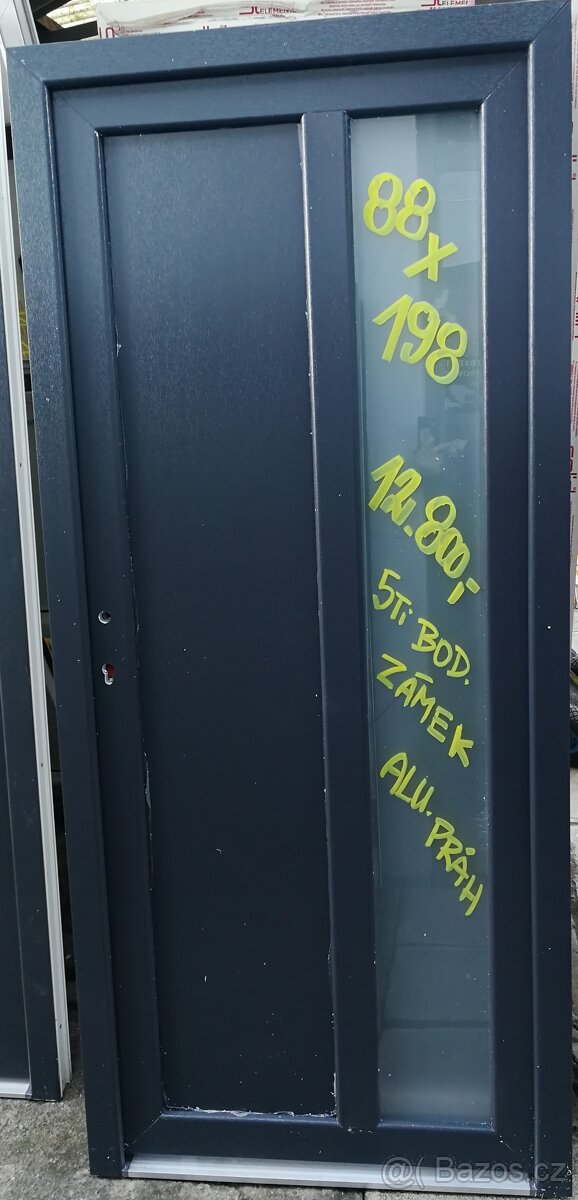 ELEMENT
88
x
198
12.800,-
5Ti BOD.
ZÁMEK
ALU. PRÁH
@( Bazos.cz